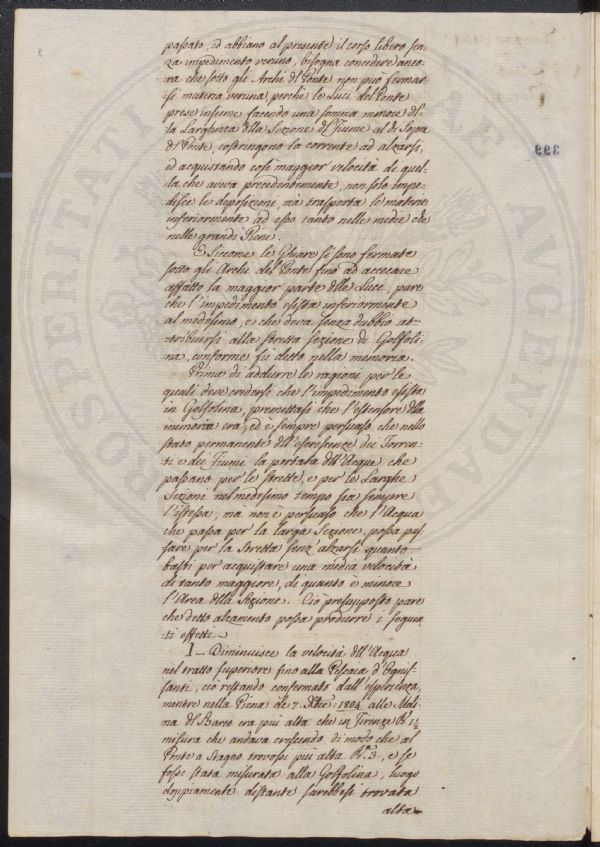 passato, ed abbiano al presente il corso libero sen-
za impedimento veruno, bisogna concedere anco-
ra che sotto gli Archi del Ponte non può fermar-
si materia veruna, perchè le Luci del Ponte
prese insieme facendo una somma minore del-
la Larghezza della Sezione del Fiume al di sopra
del Ponte, costringono la corrente ad alzarsi,
ed acquistando così maggior velocità di quel-
la che aveva precedentemente, non solo impe-
disce le deposizioni, mà trasporta le materie
inferiormente ad esso tanto nelle medie che
nelle grandi Piene.
E siccome le Ghiare si sono fermate
sotto gli Archi del Ponte fino ad accecare
affatto la maggior parte delle Luce, pare
che l'impedimento esista inferiormente
al medesimo, e che deva senza dubbio at-
tribuirsi alla stretta sezione di Golfoli-
na, conforme fù detto nella memoria.
Prima di addurre le ragioni per le
quali deve credersi che l'impedimento esista
in Golfolina, premettasi che l'estensore della
memoria era, ed è sempre persuaso che nello
stato permanente dell'escrescenze dei Torren-
ti e dei Fiumi la portata dell'Acque che
passano per le strette, e per le Larghe
Sezioni nel medesimo tempo sia sempre
l'istessa, mà non è persuaso che l'Acqua
che passa per la larga Sezione, possa pas-
sare per la stretta senz'alzarsi quanto
basti per acquistare una media velocità
di tanto maggiore, di quanto è minore
l'Area della Sezione. Ciò presupposto pare
che detto alzamento possa produrre i seguen-
ti effetti.
I. Diminuisce la velocità dell'Acqua
nel tratto superiore fino alla Pescaia d'Ognis-
santi, ciò restando confermato dall'esperienza,
mentre nella Piena de 7. Xbre 1804 alle Moli-
na del Barco era più alta che in Firenze B. 1½
misura che andava crescendo di modo che al
Ponte a Stagno trovossi più alta B. 3, e se
fosse stata misurata alla Golfolina, luogo
doppiamente distante sarebbesi trovata
alta
399